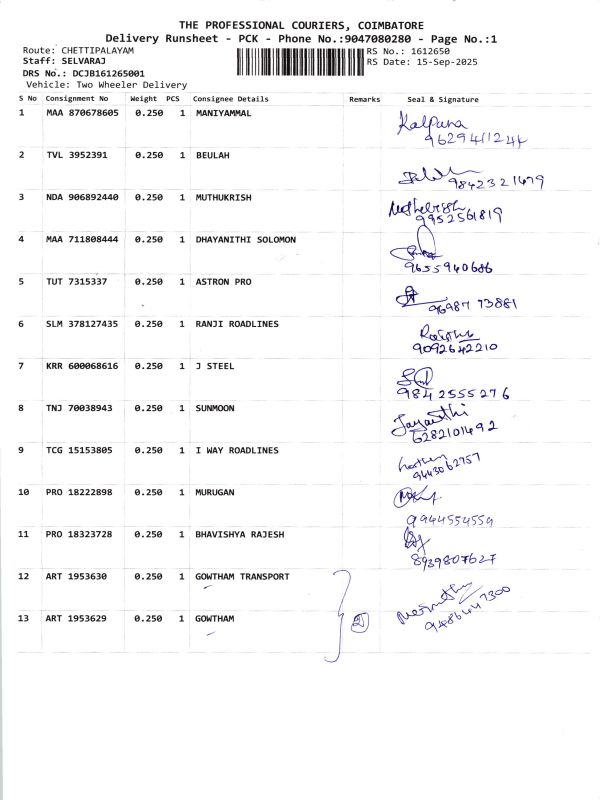 THE PROFESSIONAL COURIERS, COIMBATORE
Delivery Runsheet - PCK - Phone No.:9047080280 - Page No.:1
Route: CHETTIPALAYAM RS No.: 1612650
Staff: SELVARAJ RS Date: 15-Sep-2025
DRS No.: DCJB161265001
Vehicle: Two Wheeler Delivery
S No Consignment No Weight PCS Consignee Details Remarks Seal & Signature
1 MAA 870678605 0.250 1 MANIYAMMAL Kalpana
9629411244
2 TVL 3952391 0.250 1 BEULAH
9842321479
3 NDA 906892440 0.250 1 MUTHUKRISH
9952561819
4 MAA 711808444 0.250 1 DHAYANITHI SOLOMON
9655940686
5 TUT 7315337 0.250 1 ASTRON PRO
96987 73881
6 SLM 378127435 0.250 1 RANJI ROADLINES
9092642210
7 KRR 600068616 0.250 1 J STEEL
9842555276
8 TNJ 70038943 0.250 1 SUNMOON Jayanthi
6282101492
9 TCG 15153805 0.250 1 I WAY ROADLINES
9443062757
10 PRO 18222898 0.250 1 MURUGAN
9944554559
11 PRO 18323728 0.250 1 BHAVISHYA RAJESH
8939807627
12 ART 1953630 0.250 1 GOWTHAM TRANSPORT
13 ART 1953629 0.250 1 GOWTHAM 2
9486447300